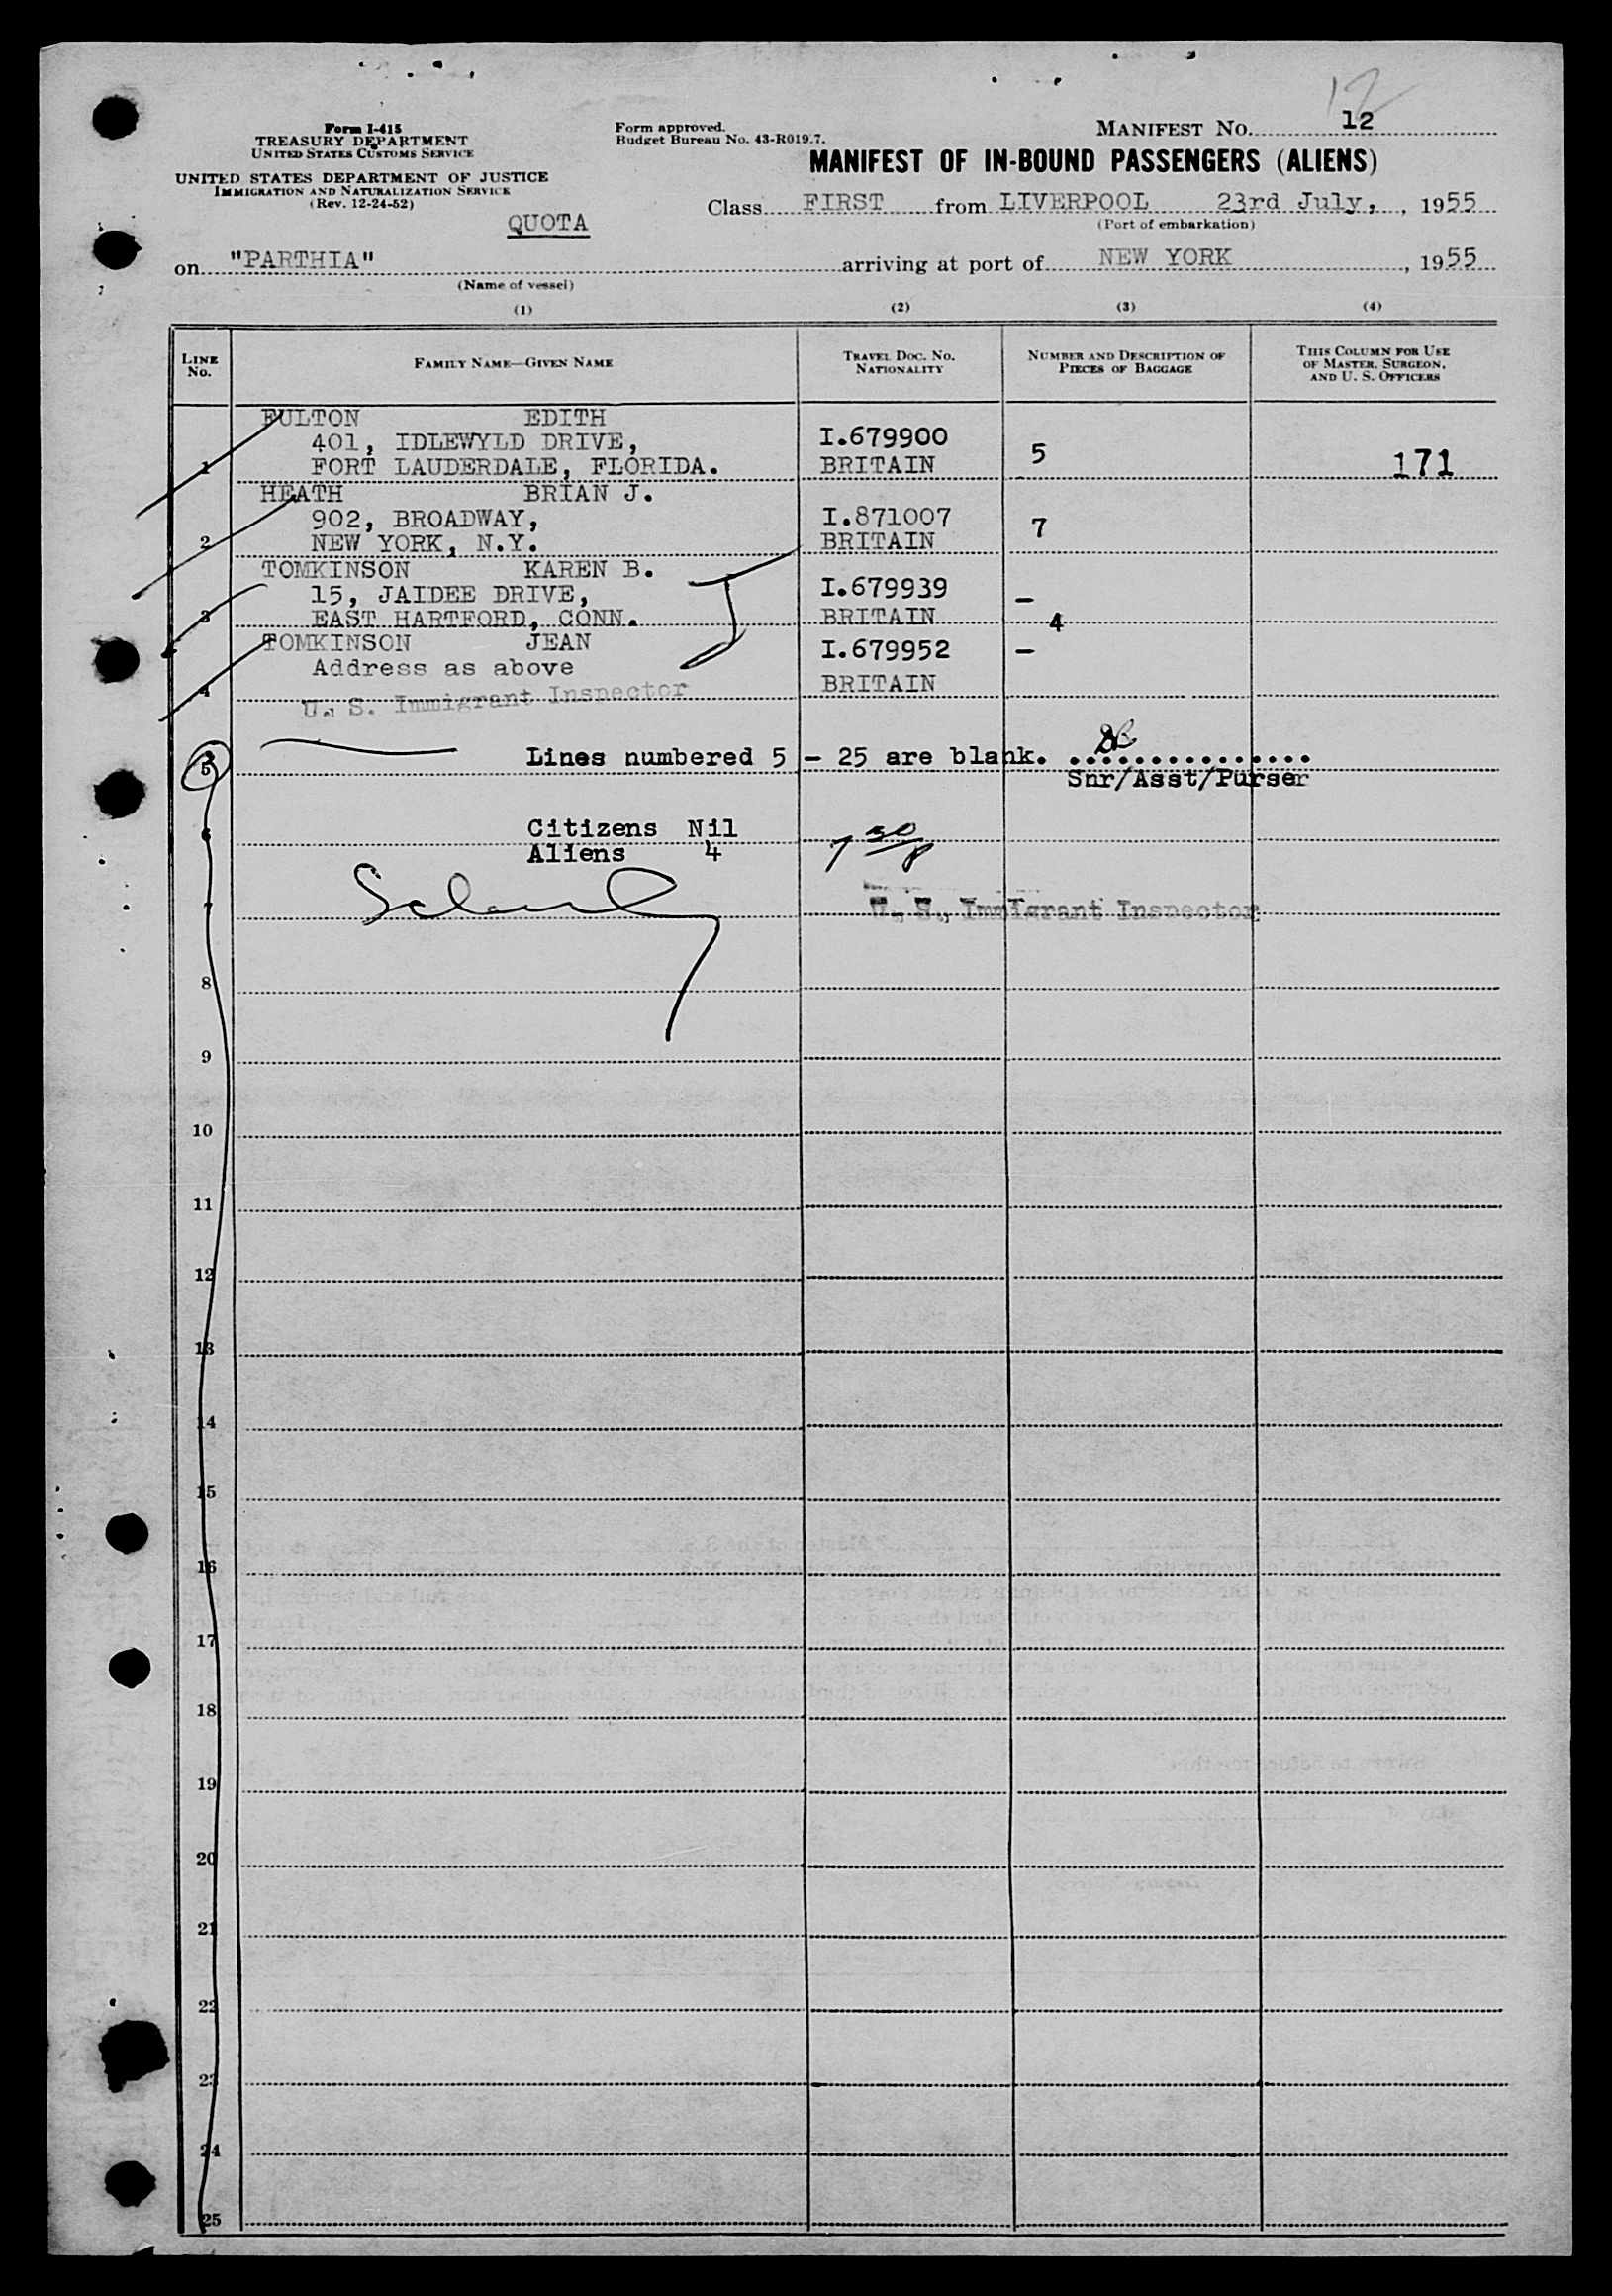 12
Form I-415
TREASURY DEPARTMENT
UNITED STATES CUSTOMS SERVICE
UNITED STATES DEPARTMENT OF JUSTICE
IMMIGRATION AND NATURALIZATION SERVICE
(Rev. 12-24-52)
Form approved.
Budget Bureau No. 43-R019.7.
MANIFEST No. 12
MANIFEST OF IN-BOUND PASSENGERS (ALIENS)
QUOTA
Class FIRST from LIVERPOOL 23rd July, , 1955
(Port of embarkation)
on "PARTHIA" arriving at port of NEW YORK , 1955
(Name of vessel)
(1) (2) (3) (4)
LINE No. FAMILY NAME—GIVEN NAME TRAVEL DOC. NO. NATIONALITY NUMBER AND DESCRIPTION OF PIECES OF BAGGAGE THIS COLUMN FOR USE OF MASTER, SURGEON, AND U. S. OFFICERS
FULTON EDITH
401, IDLEWYLD DRIVE, I.679900
1 FORT LAUDERDALE, FLORIDA. BRITAIN 5 171
HEATH BRIAN J.
902, BROADWAY, I.871007 7
2 NEW YORK, N.Y. BRITAIN
TOMKINSON KAREN B.
15, JAIDEE DRIVE, I.679939 –
3 EAST HARTFORD, CONN. BRITAIN 4
TOMKINSON JEAN I.679952 –
Address as above
4 BRITAIN
U. S. Immigrant Inspector
5 Lines numbered 5 – 25 are blank. ...............
Snr/Asst/Purser
6 Citizens Nil
Aliens 4
7 U. S. Immigrant Inspector
8
9
10
11
12
13
14
15
16
17
18
19
20
21
22
23
24
25